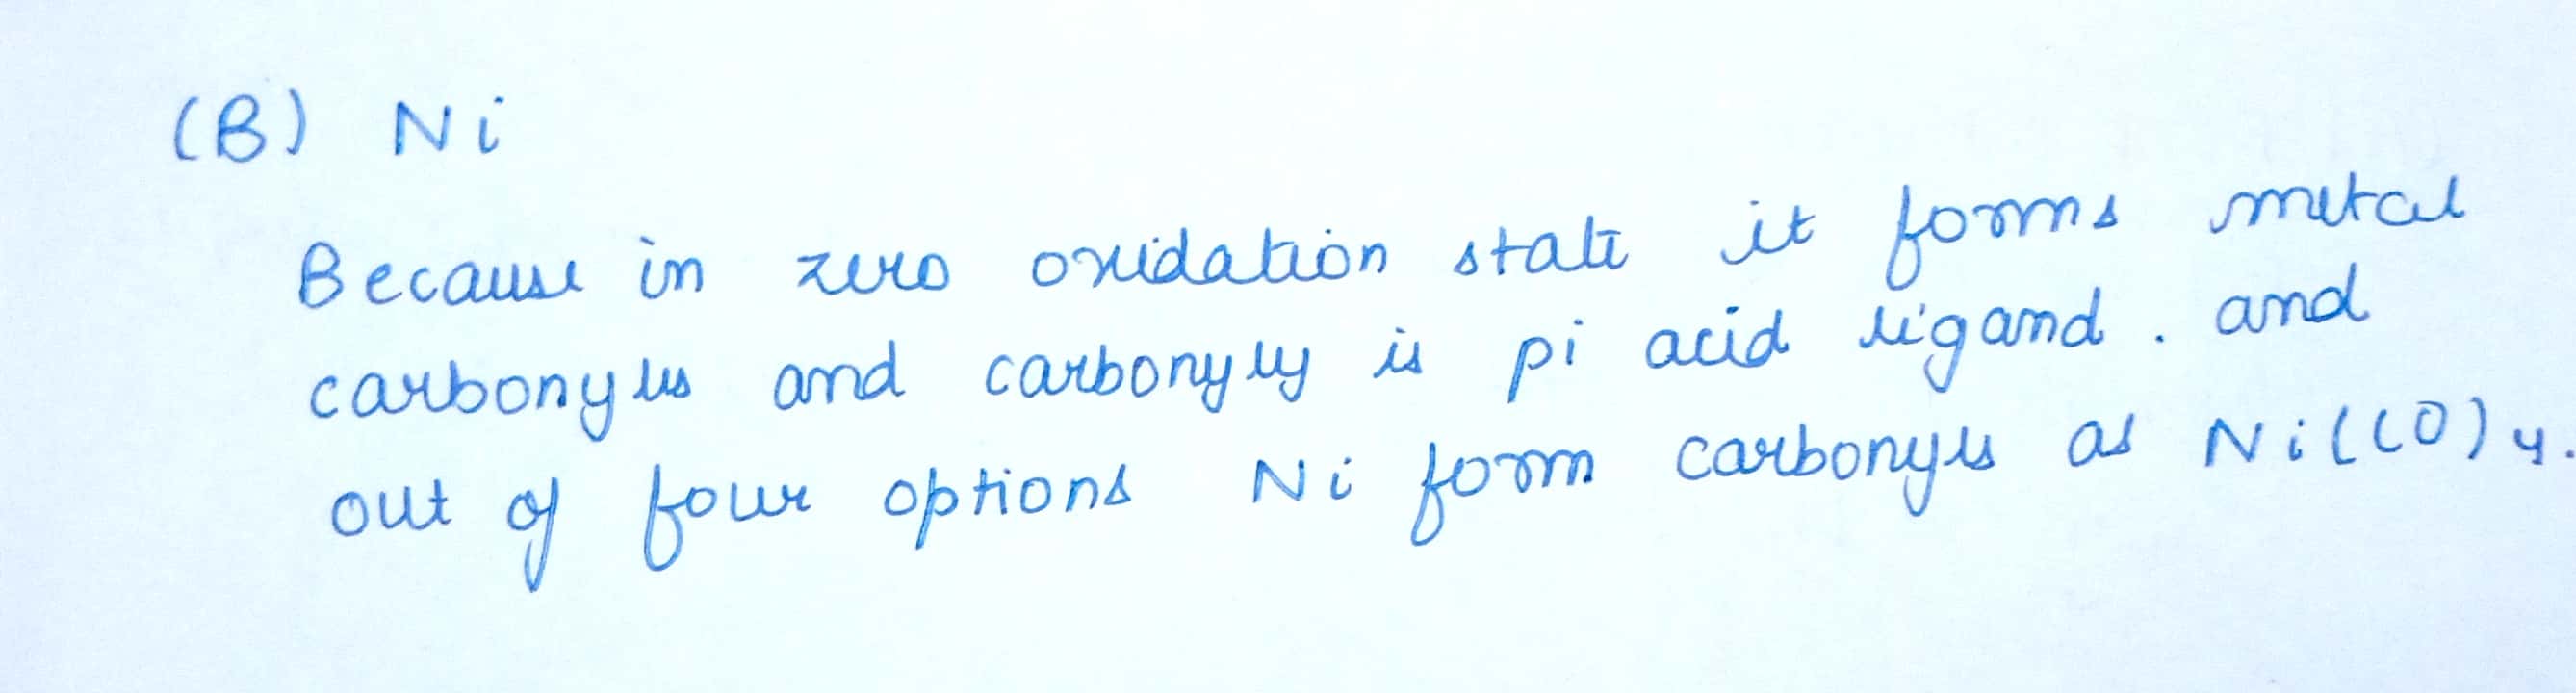 (B) Ni
Because in zero oxidation state it forms metal
carbonyls and carbonyly is pi acid ligand. and
out of four options Ni form carbonyls as Ni(CO)4.